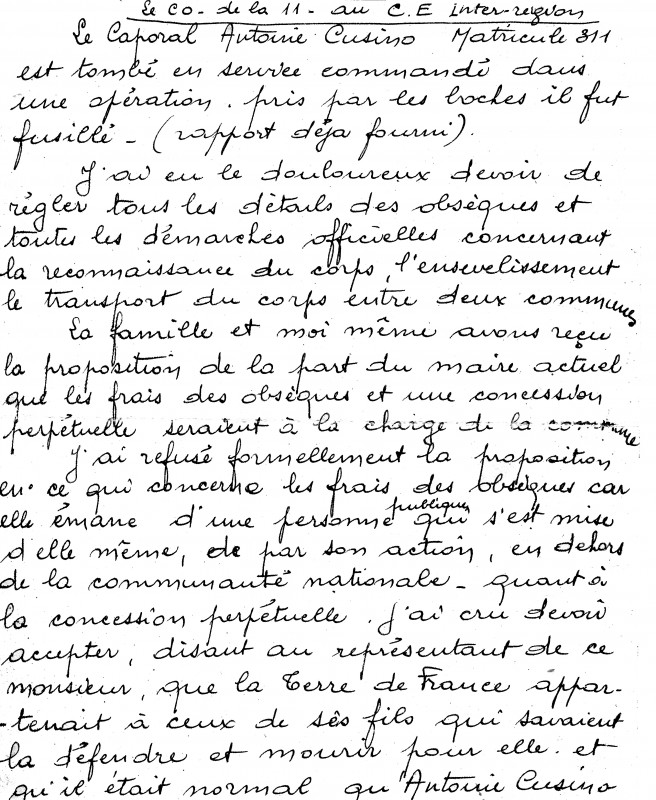 Le Co - de la 11 - au C.E inter-region
Le Caporal Antoine Cusino Matricule 311
est tombé en service commandé dans
une opération. pris par les boches il fut
fusillé - (rapport déja fourni).
J'ai eu le douloureux devoir de
régler tous les détails des obsèques et
toutes les démarches officielles concernant
la reconnaissance du corps, l'ensevelissement
le transport du corps entre deux communes
La famille et moi même avons reçu
la proposition de la part du maire actuel
que les frais des obsèques et une concession
perpétuelle seraient à la charge de la commune
J'ai refusé formellement la proposition
en ce qui concerne les frais des obsèques car
elle émane d'une personne publique qui s'est mise
d'elle même, de par son action, en dehors
de la communauté nationale - quant à
la concession perpétuelle. j'ai cru devoir
accepter, disant au représentant de ce
monsieur, que la Terre de France appar-
-tenait à ceux de sès fils qui savaient
la défendre et mourir pour elle. et
qu'il était normal qu'Antoine Cusino